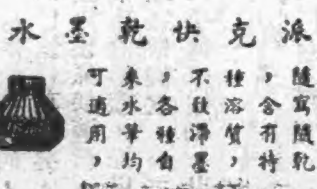 派克快乾墨水
隨寫隨乾
,含有特
種溶質,
不致滯墨
,各種自
來水筆均
可適用,